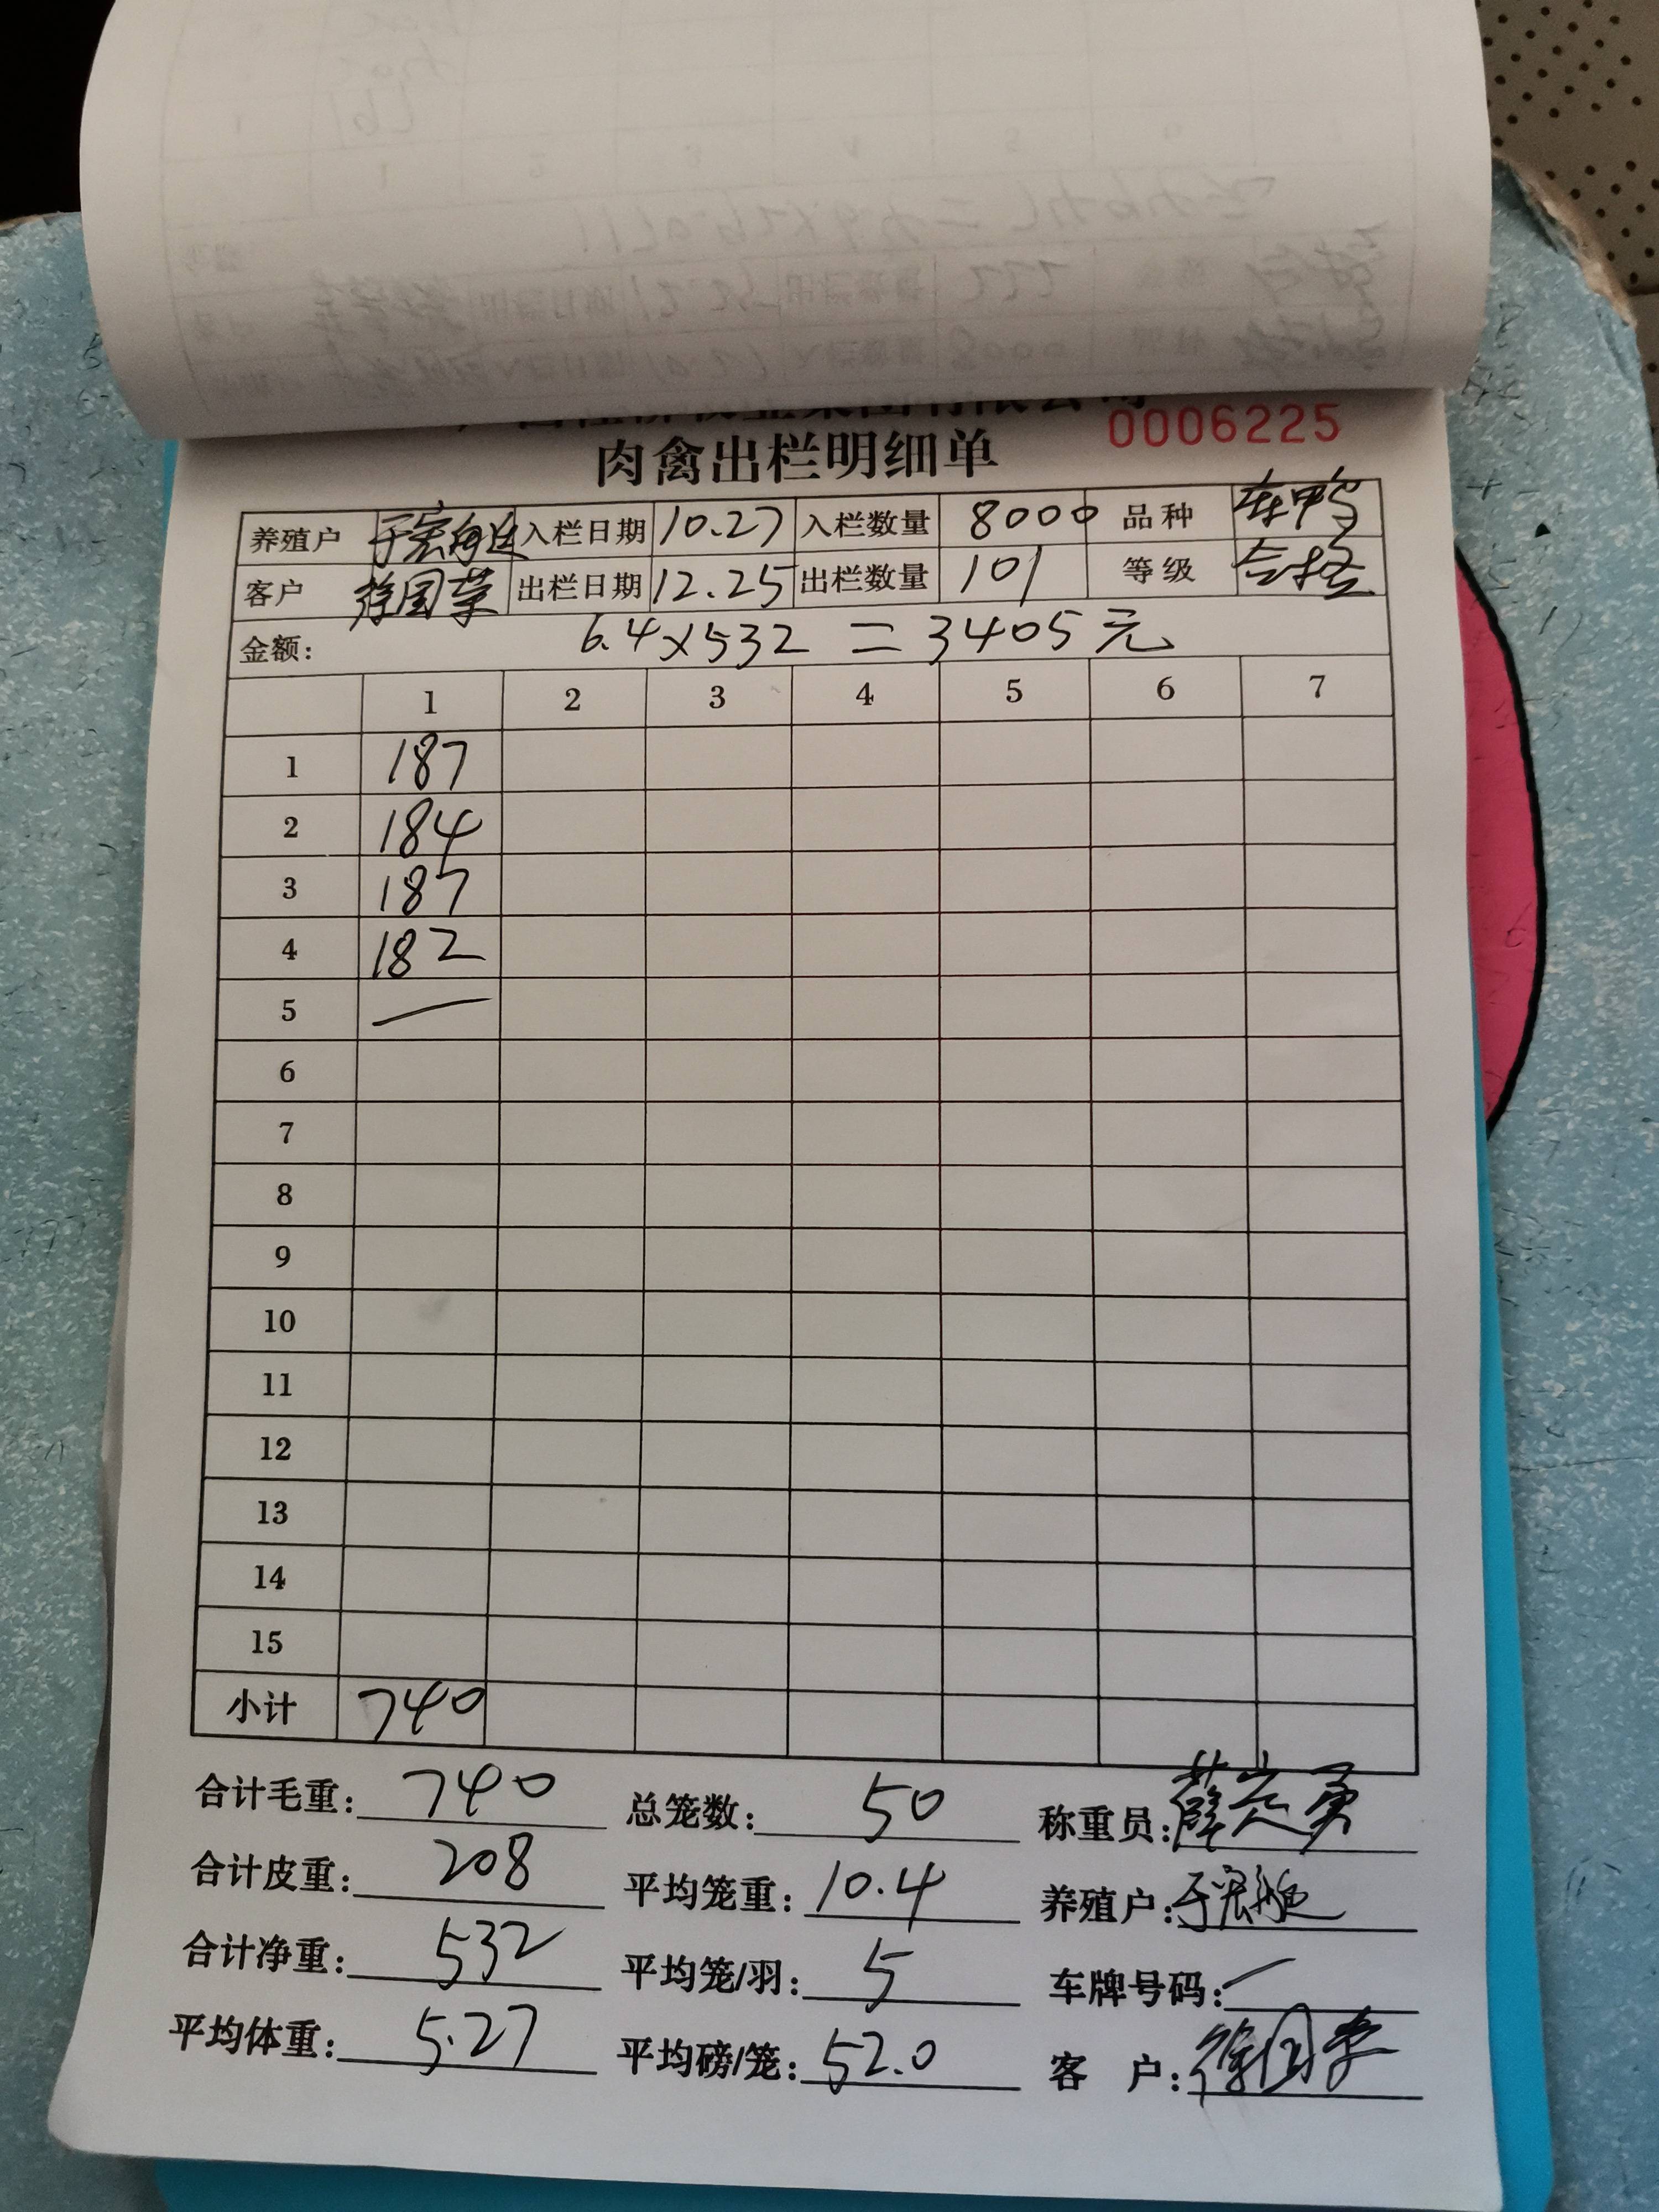 0006225
肉禽出栏明细单
养殖户 入栏日期 10.27 入栏数量 8000 品种
客户 徐国荣 出栏日期 12.25 出栏数量 101 等级 合格
金额: 6.4×532=3405元
1 2 3 4 5 6 7
1 187
2 184
3 187
4 182
5 —
6
7
8
9
10
11
12
13
14
15
小计 740
合计毛重: 740 总笼数: 50 称重员:
合计皮重: 208 平均笼重: 10.4 养殖户:
合计净重: 532 平均笼/羽: 5 车牌号码: 一
平均体重: 5.27 平均磅/笼: 52.0 客 户: 徐国荣